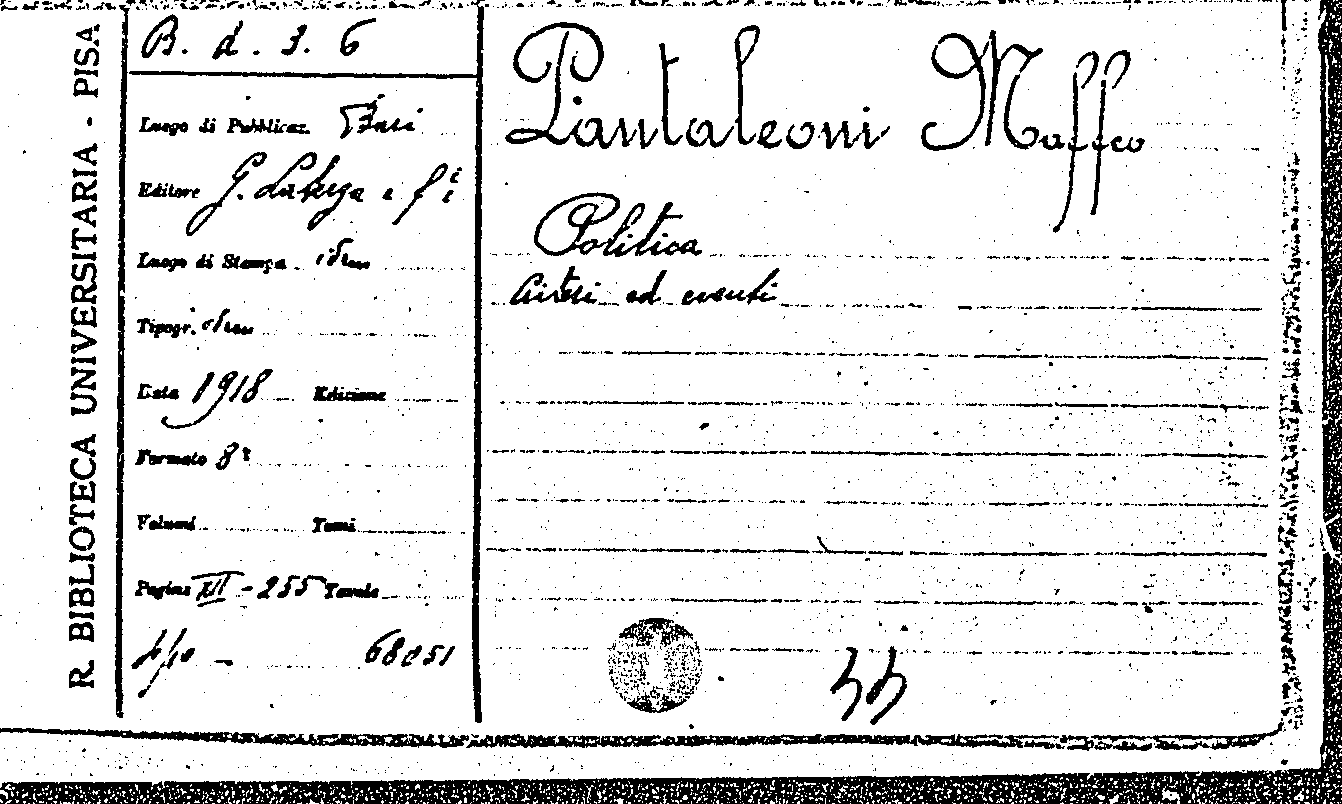 R. BIBLIOTECA UNIVERSITARIA - PISA
B. d. 3. 6
Luogo di Pubblicaz. Bari
Editore G. Laterza e fi
Luogo di Stampa idem
Tipogr. idem
Data 1918 Edizione
Formato 8º
Volumi Tomi
Pagine XII - 255 Tavole
68051
Pantaleoni Maffeo
Politica
ed eventi